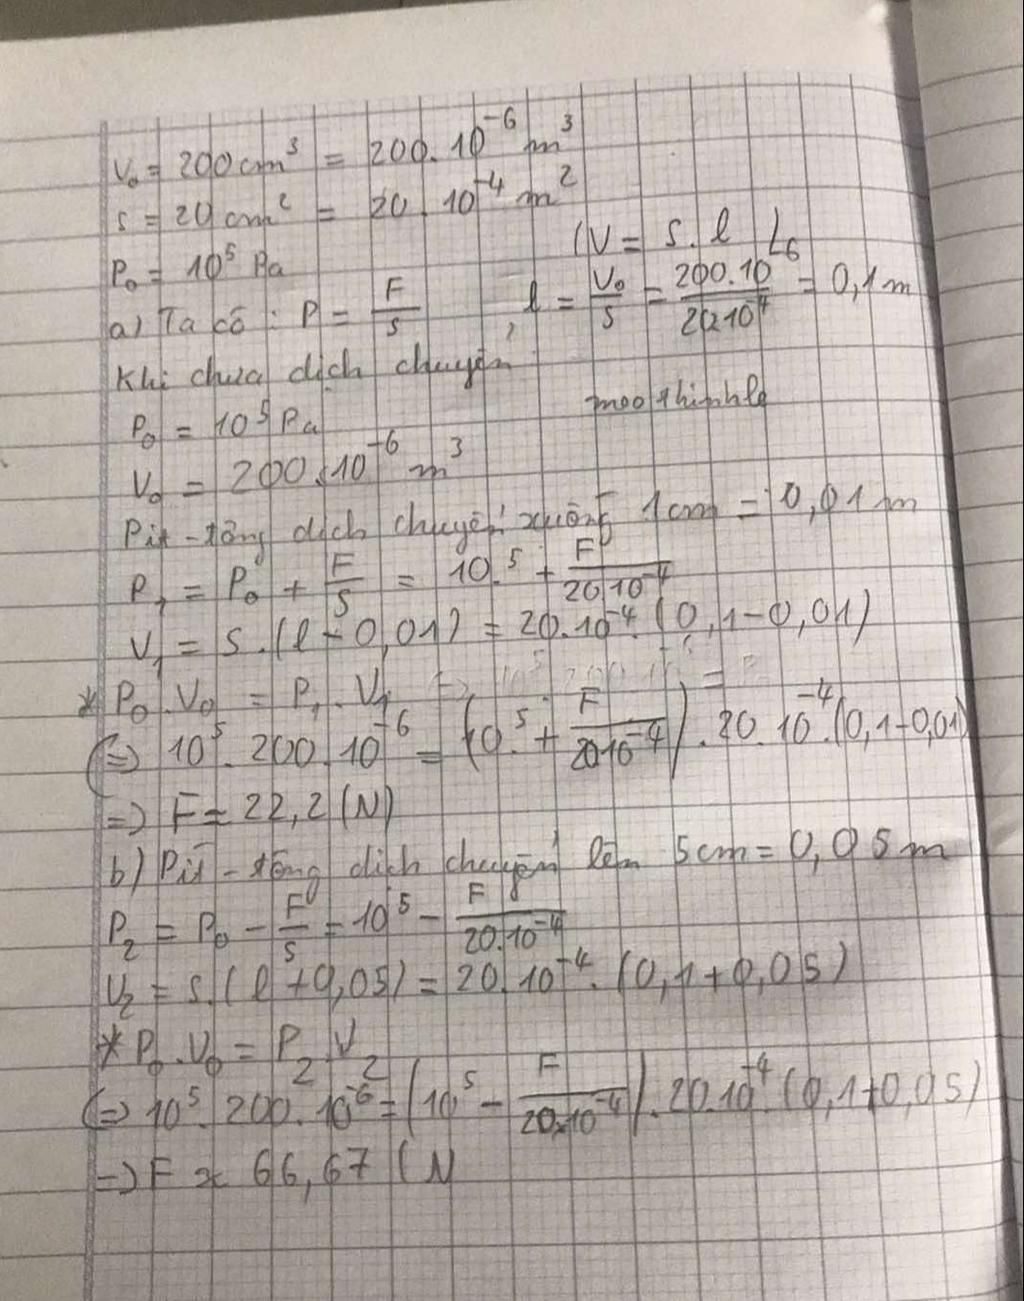 V₀ = 200 cm³ = 200.10⁻⁶ m³
S = 20 cm² = 20.10⁻⁴ m²
P₀ = 10⁵ Pa
(V = S.l
a) Ta có : P = F/S , l = V₀/S = 200.10⁻⁶/20.10⁻⁴ = 0,1 m
Khi chưa dịch chuyển
P₀ = 10⁵ Pa
V₀ = 200.10⁻⁶ m³
Pit-tông dịch chuyển xuống 1cm = 0,01 m
P₁ = P₀ + F/S = 10⁵ + F/20.10⁻⁴
V₁ = S.(l - 0,01) = 20.10⁻⁴.(0,1-0,01)
* P₀.V₀ = P₁.V₁
(=) 10⁵.200.10⁻⁶ = (10⁵ + F/20.10⁻⁴).20.10⁻⁴.(0,1-0,01)
=) F = 22,2 (N)
b) Pít-tông dịch chuyển lên 5cm = 0,05 m
P₂ = P₀ - F/S = 10⁵ - F/20.10⁻⁴
V₂ = S.(l + 0,05) = 20.10⁻⁴.(0,1+0,05)
* P₀.V₀ = P₂V₂
(=) 10⁵.200.10⁻⁶ = (10⁵ - F/20.10⁻⁴).20.10⁻⁴.(0,1+0,05)
=) F ≈ 66,67 (N